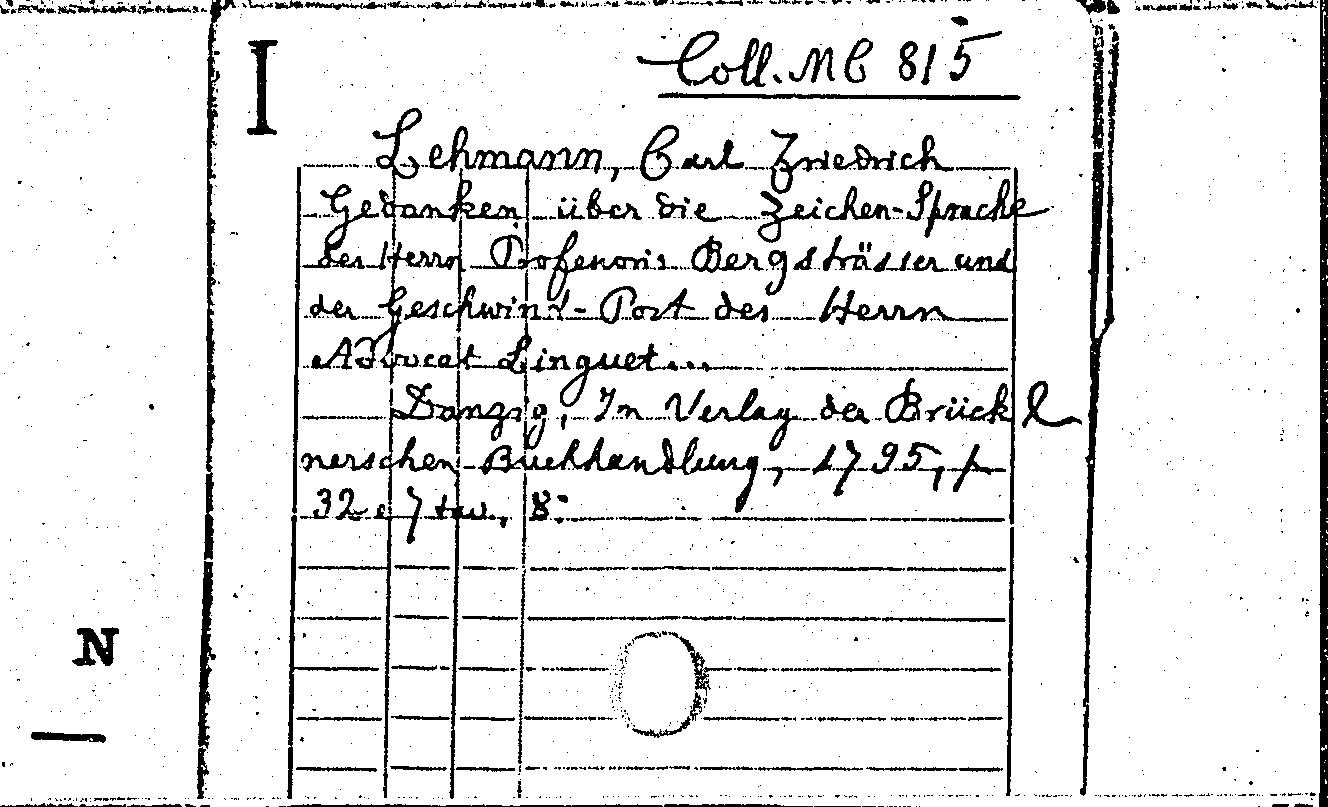 I
Coll. MC 815
Lehmann, Carl Friedrich
Gedanken über die Zeichen-Sprache
des Herrn ProfesSoris Bergsträsser und
der Geschwind-Post des Herrn
Advocat Linguet...
Danzig, In Verlag der Brückl
nerschen Buchhandlung, 1795, p
32 e 7 tav., 8:
N